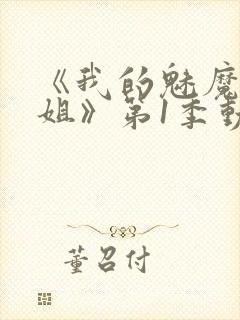 《我的魅魔
姐》第1季動
董召付